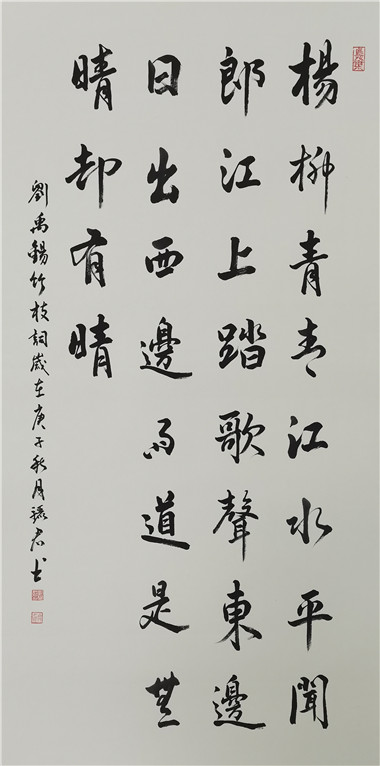 楊柳青青江水平聞
郎江上踏歌聲東邊
日出西邊雨道是無
晴却有晴
劉禹錫竹枝詞歲在庚子秋月君书